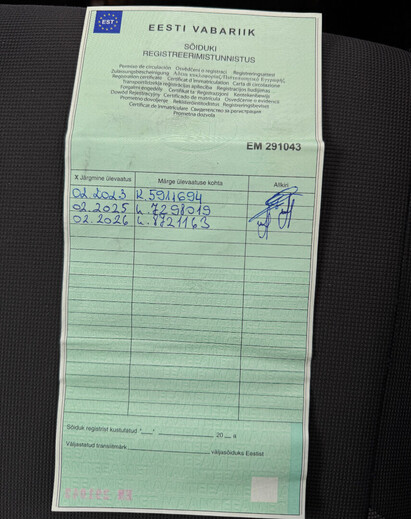 EST
EESTI VABARIIK
SÕIDUKI
REGISTREERIMISTUNNISTUS
Permiso de circulación Osvědčení o registraci Registreringsattest
Zulassungsbescheinigung Άδεια κυκλοφορίας
Registration certificate Certificat d'immatriculation Carta di circolazione
Transportlīdzekļa reģistrācijas apliecība Registracijos liudijimas
Forgalmi engedély Ċertifikat ta' Reġistrazzjoni Kentekenbewijs
Dowód Rejestracyjny Certificado de matrícula Osvedčenie o evidencii
Prometno dovoljenje Rekisteröintitodistus Registreringsbeviset
Certificat de înmatriculare Свидетелство за регистрация
Prometna dozvola
EM 291043
X Järgmine ülevaatus Märge ülevaatuse kohta Allkiri
02.2023 K.5911694
02.2025 L.7298019
02.2026 L.8721163
Sõiduk registrist kustutatud "___" 20 a
Väljastatud transiitmärk väljasõiduks Eestist